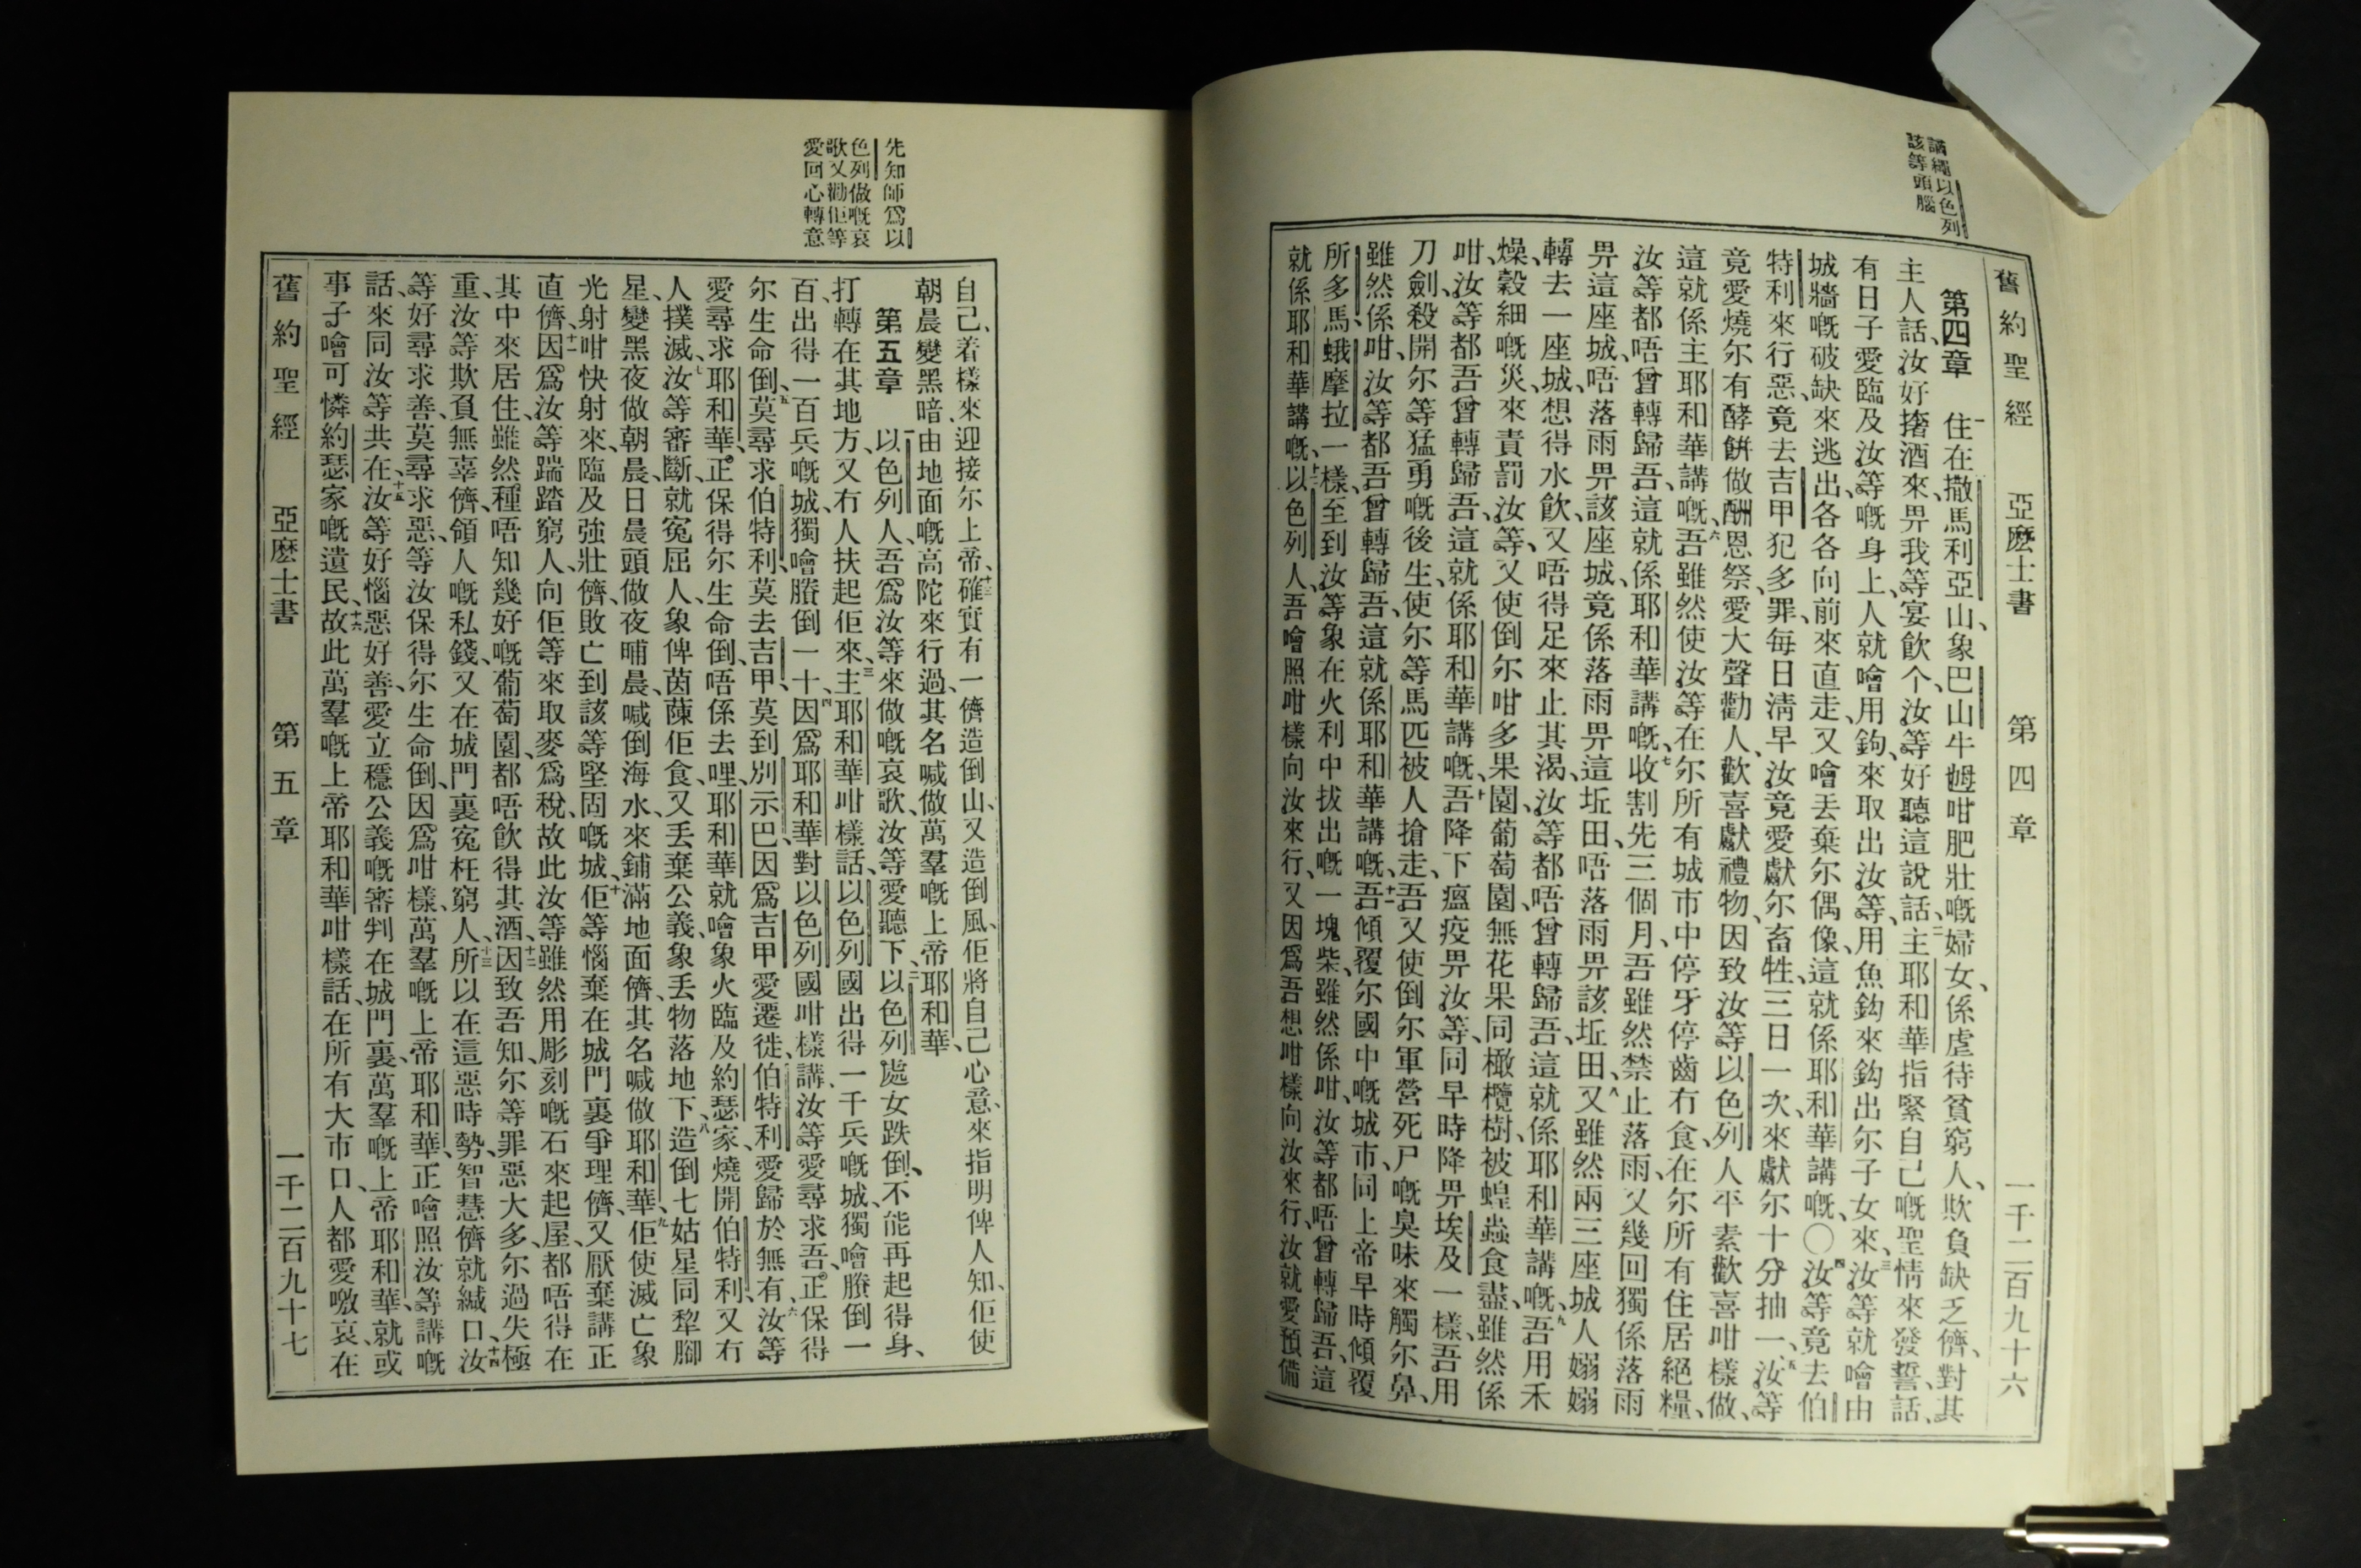 舊約聖經　亞麽士書　第四章　一千二百九十六
譎繩以色列
該等頭腦
第四章　一住在撒馬利亞山、象巴山牛乸咁肥壯嘅婦女、係虐待貧窮人、欺負缺乏儕、對其
主人話、汝好撦酒來、畀我等宴飲个、汝等好聽這說話、二主耶和華指緊自己嘅聖情來發誓話、
有日子愛臨及汝等嘅身上、人就噲用鉤、來取出汝等、用魚鈎來鈎出尔子女來、三汝等就噲由
城牆嘅破缺來逃出、各各向前來直走、又噲丟棄尔偶像、這就係耶和華講嘅、〇四汝等竟去伯
特利來行惡、竟去吉甲犯多罪、每日清早、汝竟愛獻尔畜牲、三日一次、來獻尔十分抽一、五汝等
竟愛燒尔有酵餅做酬恩祭、愛大聲勸人、歡喜獻禮物、因致汝等以色列人平素歡喜咁樣做、
這就係主耶和華講嘅、六吾雖然使汝等在尔所有城市中停牙停齒冇食、在尔所有住居絕糧、
汝等都唔曾轉歸吾、這就係耶和華講嘅、七收割先三個月、吾雖然禁止落雨、又幾回獨係落雨
畀這座城、唔落雨畀該座城、竟係落雨畀這坵田、唔落雨畀該坵田、八又雖然兩三座城人嫋嫋
轉去一座城、想得水飲、又唔得足來止其渴、汝等都唔曾轉歸吾、這就係耶和華講嘅、九吾用禾
燥、穀細嘅災、來責罰汝等、又使倒尔咁多果園、葡萄園、無花果同橄欖樹、被蝗蟲食盡、雖然係
咁、汝等都吾曾轉歸吾、這就係耶和華講嘅、十吾降下瘟疫畀汝等、同早時降畀埃及一樣、吾用
刀劍、殺開尔等猛勇嘅後生、使尔等馬匹被人搶走、吾又使倒尔軍營死尸嘅臭味來觸尔鼻、
雖然係咁、汝等都吾曾轉歸吾、這就係耶和華講嘅、十一吾傾覆尔國中嘅城市、同上帝早時傾覆
所多馬、蛾摩拉一樣、至到汝等象在火利中拔出嘅一塊柴、雖然係咁、汝等都唔曾轉歸吾、這
就係耶和華講嘅、十二以色列人、吾噲照咁樣向汝來行、又因爲吾想咁樣向汝來行、汝就愛預備
先知師爲以
色列做嘅哀
歌又勸佢等
愛回心轉意
自己、着樣來迎接尔上帝、十三確實有一儕造倒山、又造倒風、佢將自己心意、來指明俾人知、佢使
朝晨變黑暗、由地面嘅高陀來行過、其名喊做萬羣嘅上帝耶和華、
第五章　一以色列人、吾爲汝等來做嘅哀歌、汝等愛聽下、二以色列處女跌倒、不能再起得身、
打轉在其地方、又冇人扶起佢來、三主耶和華咁樣話、以色列國出得一千兵嘅城、獨噲賸倒一
百、出得一百兵嘅城、獨噲賸倒一十、四因爲耶和華對以色列國咁樣講、汝等愛尋求吾、正保得
尔生命倒、五莫尋求伯特利、莫去吉甲、莫到別示巴、因爲吉甲愛遷徙、伯特利愛歸於無有、六汝等
愛尋求耶和華、正保得尔生命倒、唔係去哩、耶和華就噲象火臨及約瑟家、燒開伯特利、又冇
人撲滅、七汝等審斷、就冤屈人、象俾茵蔯佢食、又丟棄公義、象丢物落地下、八造倒七姑星同犂腳
星、變黑夜做朝晨、日晨頭做夜晡晨、喊倒海水、來鋪滿地面儕、其名喊做耶和華、九佢使滅亡象
光射咁快射來、臨及強壯儕、敗亡到該等堅固嘅城、十佢等惱棄在城門裏爭理儕、又厭棄講正
直儕、十一因爲汝等踹踏窮人、向佢等來取麥爲稅、故此汝等雖然用彫刻嘅石來起屋、都唔得在
其中來居住、雖然種唔知幾好嘅葡萄園、都唔飲得其酒、十二因致吾知、尔等罪惡大多、尔過失極
重、汝等欺負無辜儕、領人嘅私錢、又在城門裏寃枉窮人、十三所以在這惡時勢、智慧儕就緘口、十四汝
等好尋求善、莫尋求惡、等汝保得尔生命倒、因爲咁樣、萬羣嘅上帝耶和華、正噲照汝等講嘅
話、來同汝等共在、十五汝等好惱惡好善、愛立穩公義嘅審判在城門裏、萬羣嘅上帝耶和華、就或
事子噲可憐約瑟家嘅遺民、十六故此萬羣嘅上帝耶和華咁樣話、在所有大市口、人都愛噭哀、在
舊約聖經　亞麽士書　第五章　一千二百九十七